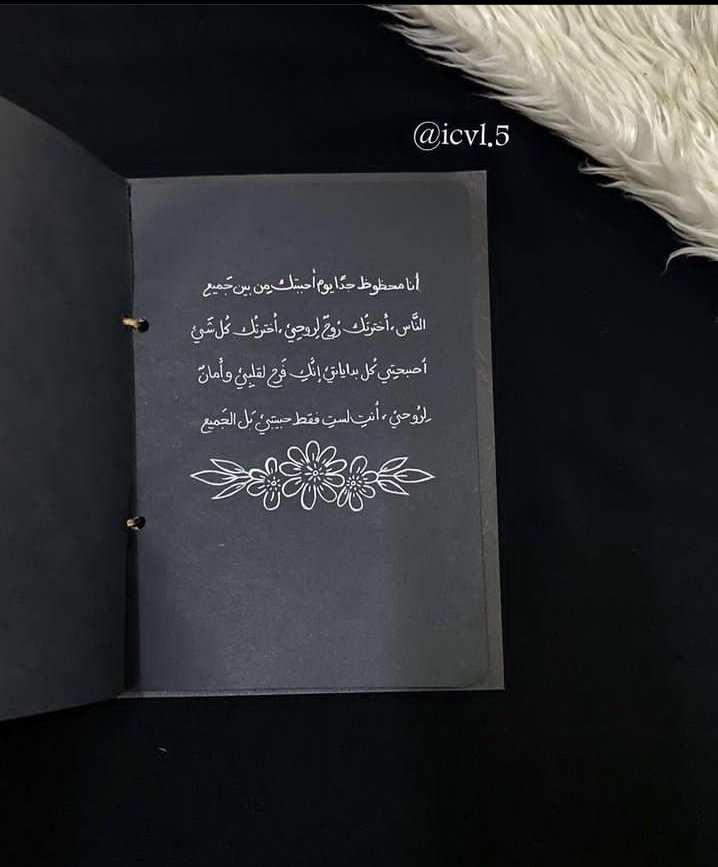 @icvl.5
أنا محظوظ جدًا يوم أحببتك مِن بين جَميع
النَّاس ، أخترتُك رُوحٌ لِروحِي ، أخترتُك كُل شَيْ
أصبحتِي كُل بداياتي إنَّكِ فَرح لقلبِيْ وأمانٌ
لِرُوحيْ ، أنتِ لستِ فقط حبيبتيْ بَل الجَميع